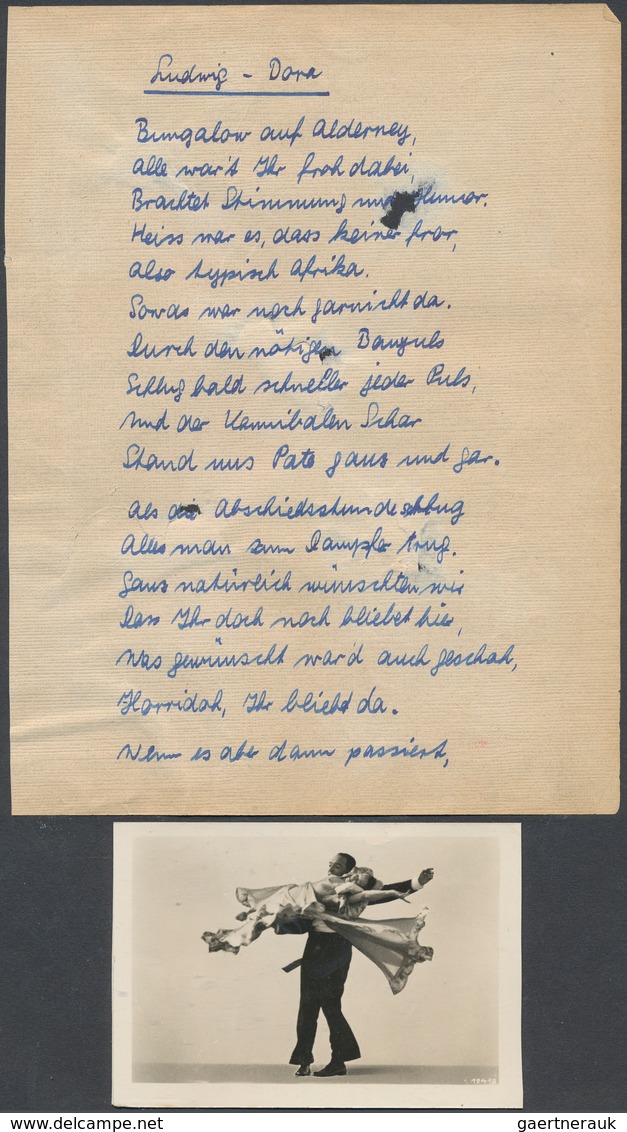 Ludwig - Dora
Bungalow auf Alderney,
Alle war't Ihr froh dabei,
Brachtet Stimmung und Humor.
Heiss war es, dass keiner fror,
Also typisch Afrika.
Sowas war noch garnicht da.
Durch den nötigen
Schlug bald schneller jeder Puls,
Und der Kannibalen Schar
Stand uns Pate ganz und gar.
Als die Abschiedsstunde schlug
Alles man zum Dampfer trug.
Ganz natürlich wünschten wir
Dass Ihr doch noch bliebet hier,
Was gewünscht war'd auch geschah,
Horridoh, Ihr bliebt da.
Wenn es aber dann passiert,
gaertnerauk